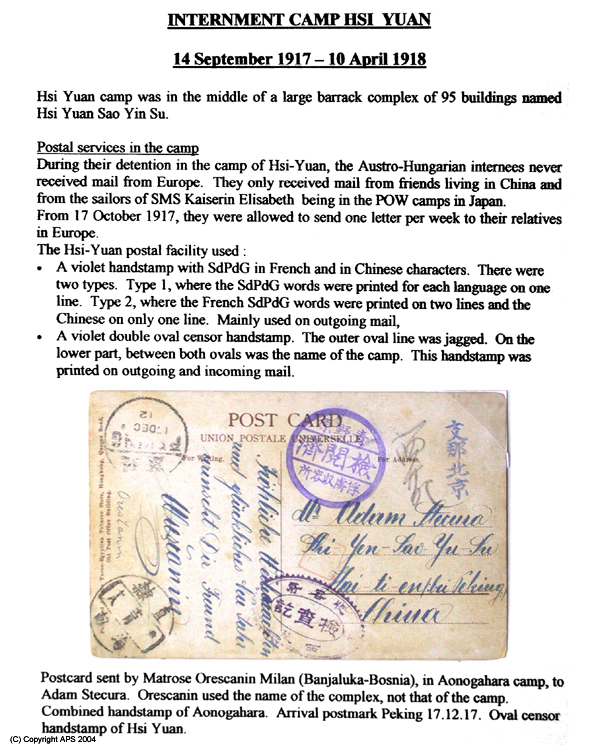 INTERNMENT CAMP HSI YUAN
14 September 1917 – 10 April 1918
Hsi Yuan camp was in the middle of a large barrack complex of 95 buildings named
Hsi Yuan Sao Yin Su.
Postal services in the camp
During their detention in the camp of Hsi-Yuan, the Austro-Hungarian internees never
received mail from Europe. They only received mail from friends living in China and
from the sailors of SMS Kaiserin Elisabeth being in the POW camps in Japan.
From 17 October 1917, they were allowed to send one letter per week to their relatives
in Europe.
The Hsi-Yuan postal facility used :
• A violet handstamp with SdPdG in French and in Chinese characters. There were
two types. Type 1, where the SdPdG words were printed for each language on one
line. Type 2, where the French SdPdG words were printed on two lines and the
Chinese on only one line. Mainly used on outgoing mail,
• A violet double oval censor handstamp. The outer oval line was jagged. On the
lower part, between both ovals was the name of the camp. This handstamp was
printed on outgoing and incoming mail.
POST CARD
UNION POSTALE UNIVERSELLE
For Writing.
For Address.
Turco-Egyptian Tobacco Store, Hongkong, Queens Road,
Old Post Office Building.
Orescanin
17 DEC
12
檢閱濟
俘虜収容所
支那北京
Mr Adam Stecura
Shi-Yen-Sao-Yu-Su
Hai-ti-en
Peking
China
Fröhliche Weihnachten
und glückliches Neu Jahr
wünscht Dir Freund
檢查訖
Postcard sent by Matrose Orescanin Milan (Banjaluka-Bosnia), in Aonogahara camp, to
Adam Stecura. Orescanin used the name of the complex, not that of the camp.
Combined handstamp of Aonogahara. Arrival postmark Peking 17.12.17. Oval censor
handstamp of Hsi Yuan.
(C) Copyright APS 2004